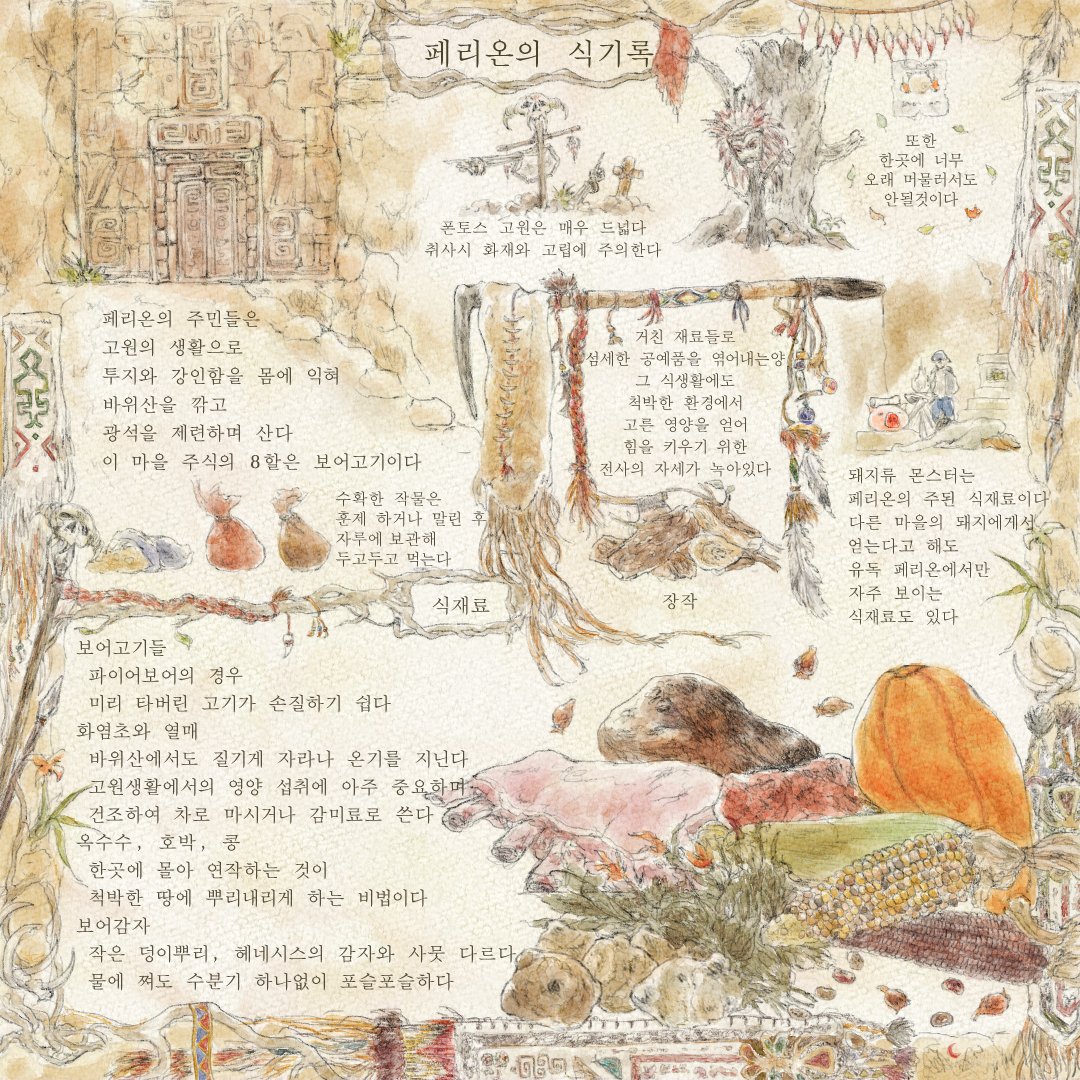 페리온의 식기록
폰토스 고원은 매우 드넓다
취사시 화재와 고립에 주의한다
또한
한곳에 너무
오래 머물러서도
안될것이다
페리온의 주민들은
고원의 생활으로
투지와 강인함을 몸에 익혀
바위산을 깎고
광석을 제련하며 산다
이 마을 주식의 8할은 보어고기이다
거친 재료들로
섬세한 공예품을 엮어내는양
그 식생활에도
척박한 환경에서
고른 영양을 얻어
힘을 키우기 위한
전사의 자세가 녹아있다
돼지류 몬스터는
페리온의 주된 식재료이다
다른 마을의 돼지에게서
얻는다고 해도
유독 페리온에서만
자주 보이는
식재료도 있다
수확한 작물은
훈제 하거나 말린 후
자루에 보관해
두고두고 먹는다
장작
식재료
보어고기들
파이어보어의 경우
미리 타버린 고기가 손질하기 쉽다
화염초와 열매
바위산에서도 질기게 자라나 온기를 지닌다
고원생활에서의 영양 섭취에 아주 중요하며
건조하여 차로 마시거나 감미료로 쓴다
옥수수, 호박, 콩
한곳에 몰아 연작하는 것이
척박한 땅에 뿌리내리게 하는 비법이다
보어감자
작은 덩이뿌리, 헤네시스의 감자와 사뭇 다르다
물에 쪄도 수분기 하나없이 포슬포슬하다